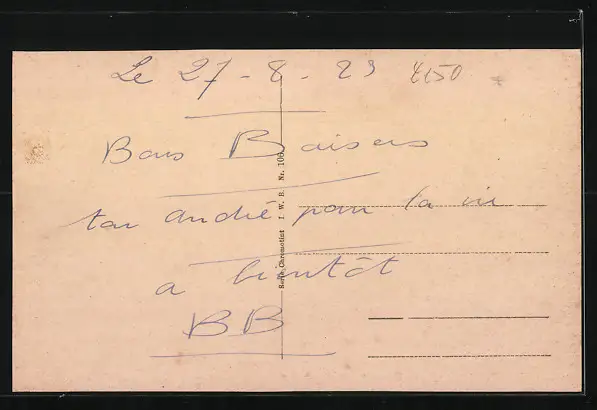 Le 27-8-23 4150
Bons Baisers
ton andré pour la vie
a bientôt
BB
Serie Chromotist I. W. B. Nr. 106